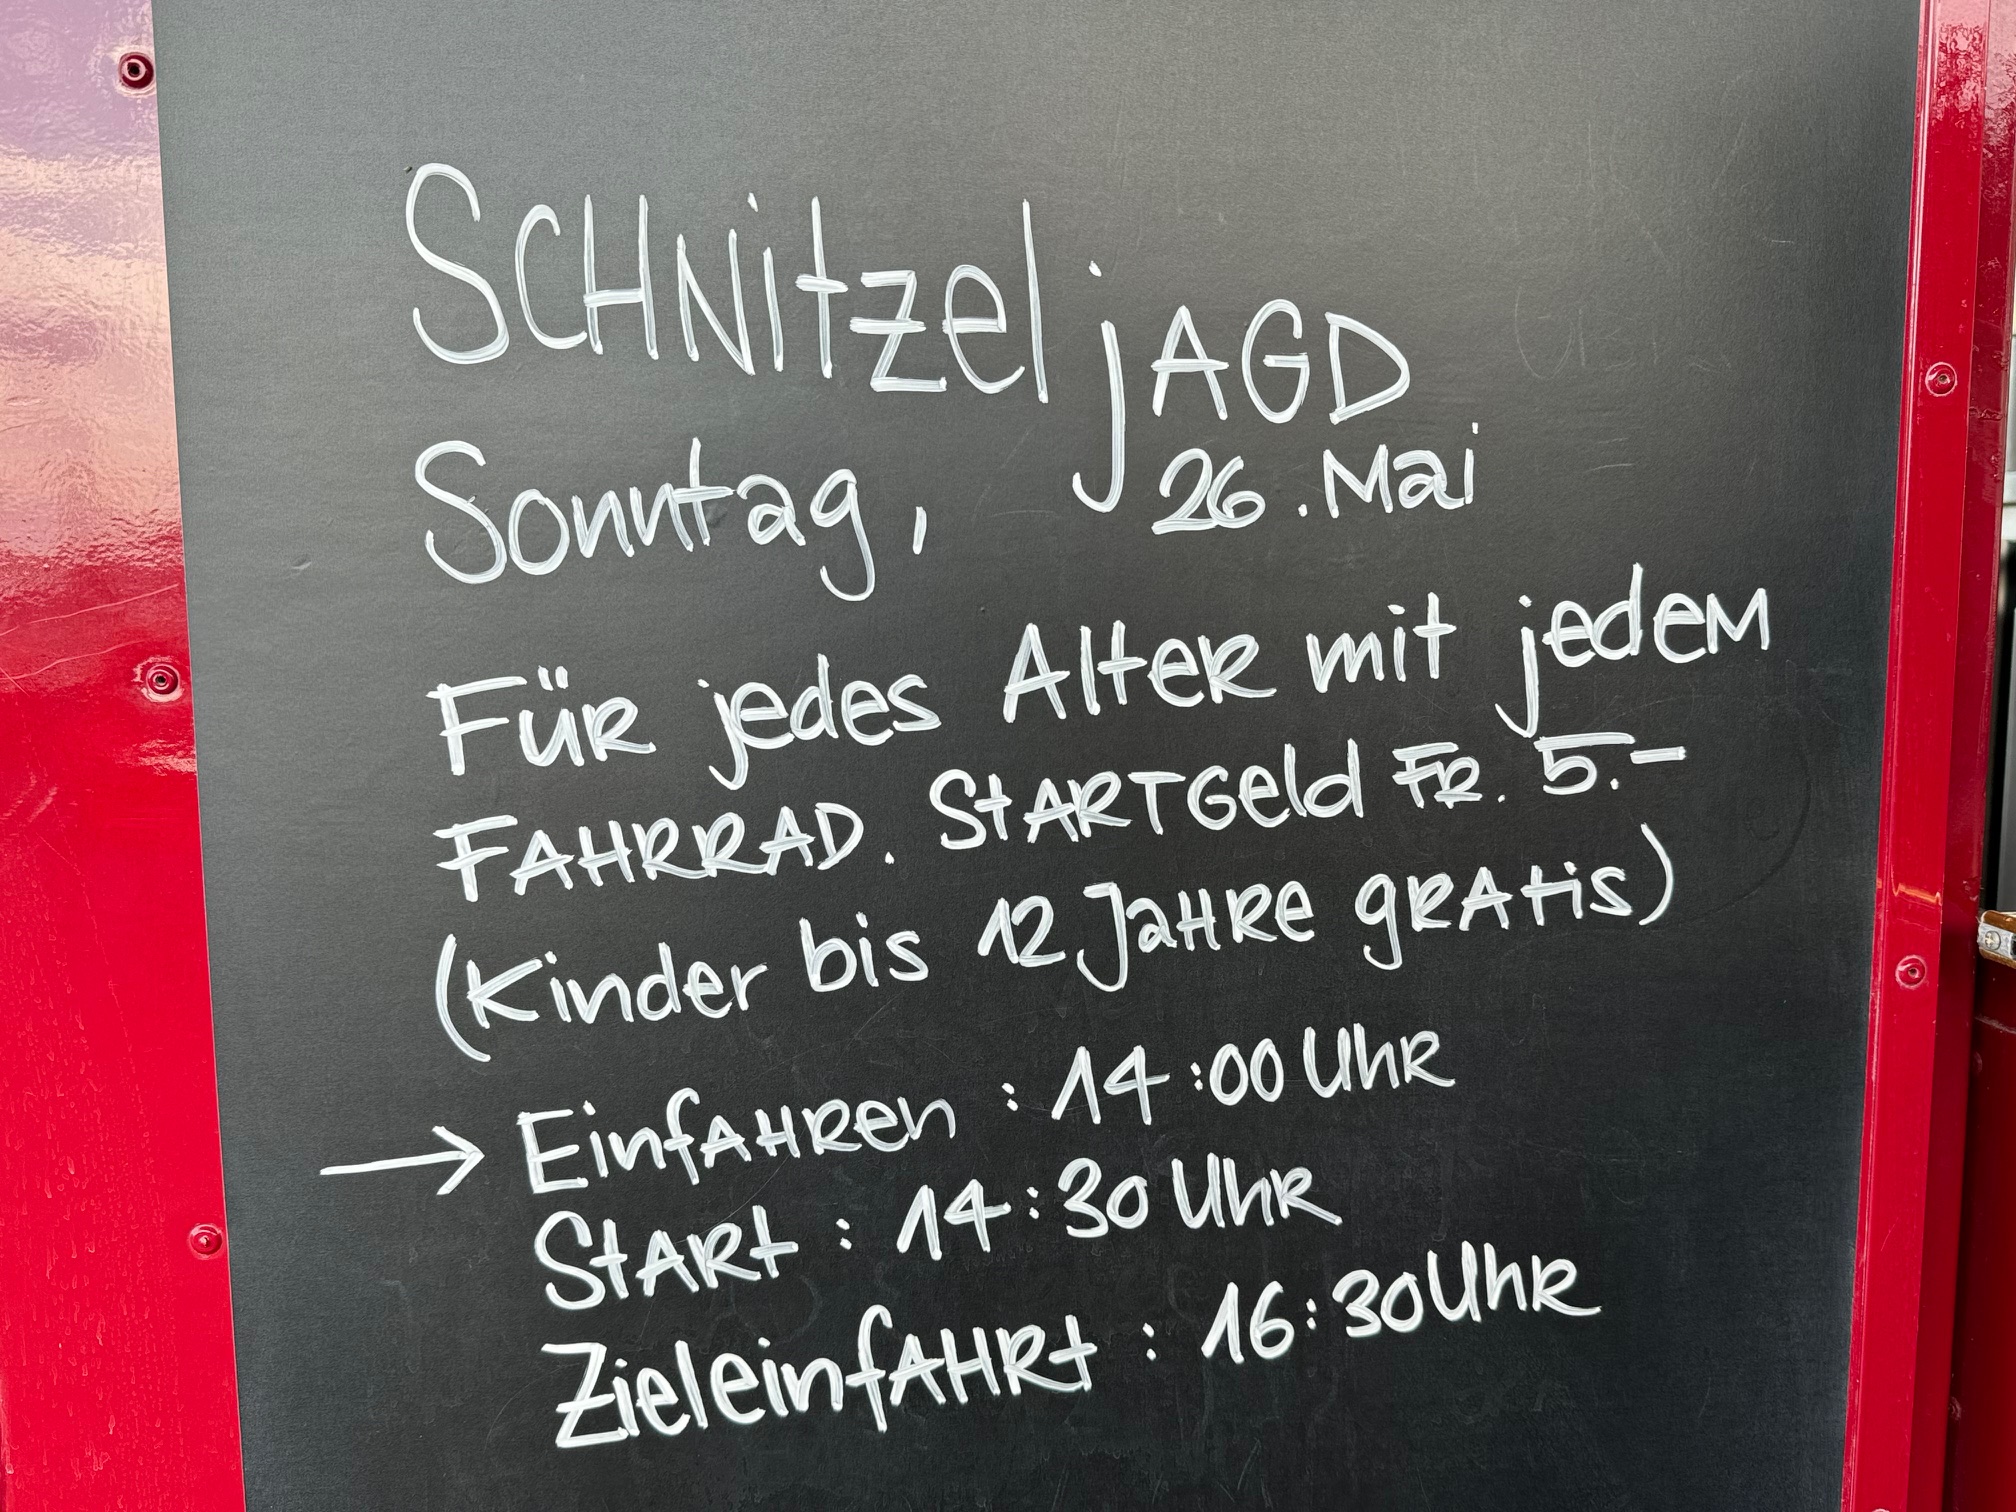 SCHNitzeljAGD
Sonntag, 26. Mai
FüR jedes AlteR mit jedeM
FAHRRAD. StARTGeld FR. 5.-
(Kinder bis 12 JaHRe gRAtis)
→ EinfAHRen : 14:00 UhR
StARt : 14:30 UhR
ZieleinfAHRt : 16:30 UhR